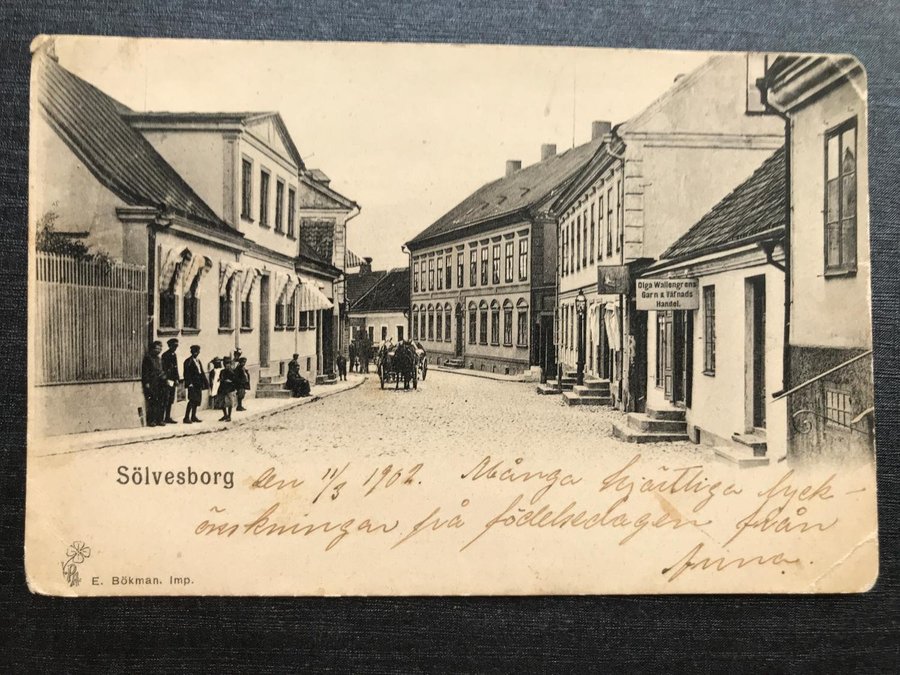 Olga Wallengrens
Garn & Väfnads
Handel.
Sölvesborg den 11/3 1902. Många hjärtliga lyck-
önskningar på födelsedagen från
Anna.
E. Bökman. Imp.